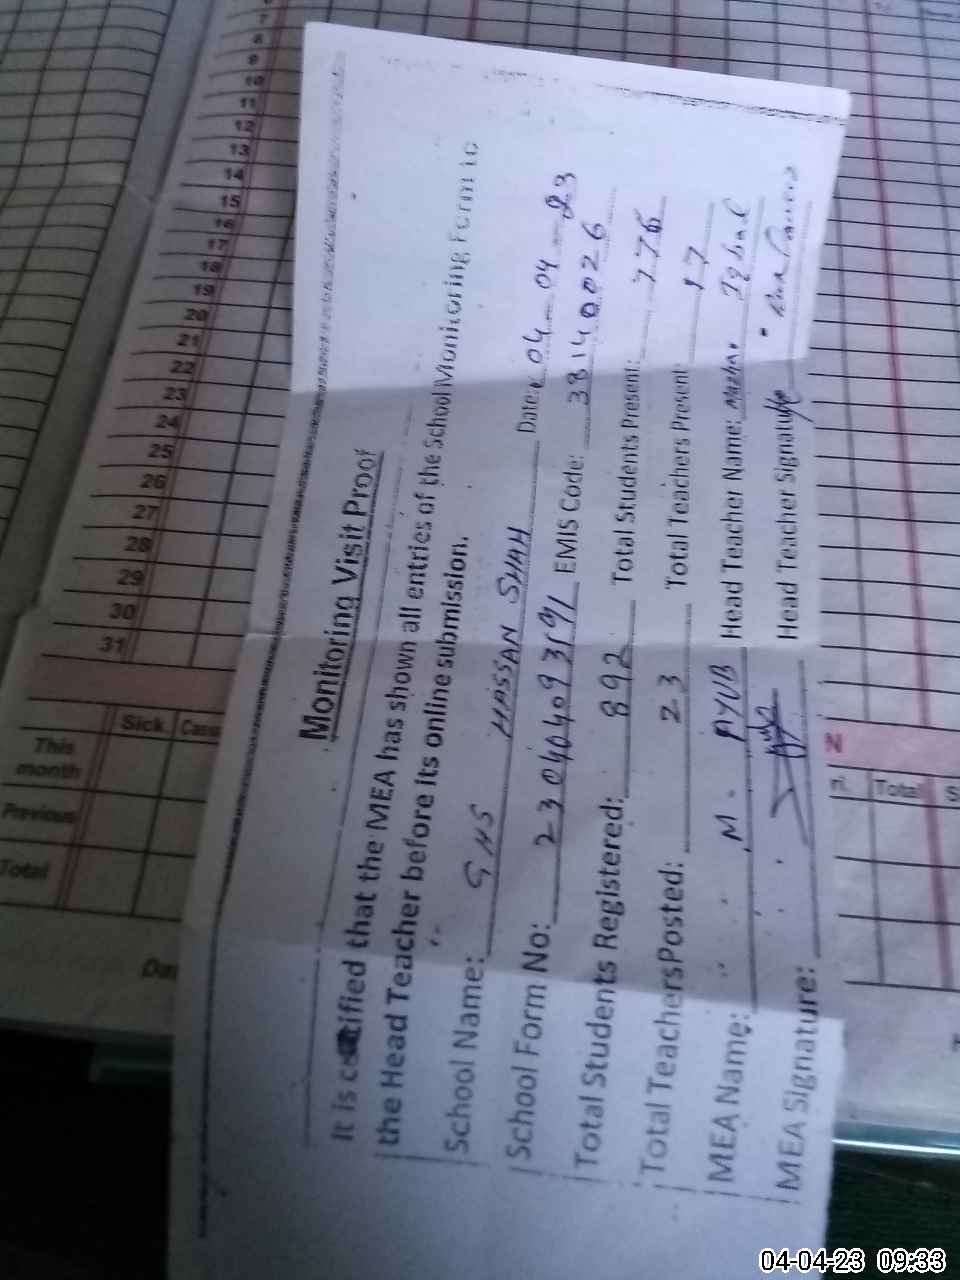 Monitoring Visit Proof
It is certified that the MEA has shown all entries of the School Monitoring Form to
the Head Teacher before its online submission.
School Name: GHS HASSAN SHAH Date: 04-04-23
School Form No: EMIS Code: 38140026
Total Students Registered: 892 Total Students Present: 776
Total Teachers Posted: 23 Total Teachers Present: 17
MEA Name: M. AYUB Head Teacher Name: Mazhar Iqbal
MEA Signature: Head Teacher Signature
7
8
9
10
11
12
13
14
15
16
17
18
19
20
21
22
23
24
25
26
27
28
29
30
31
Sick.
This
month
Previous
Total
Total
04-04-23 09:33